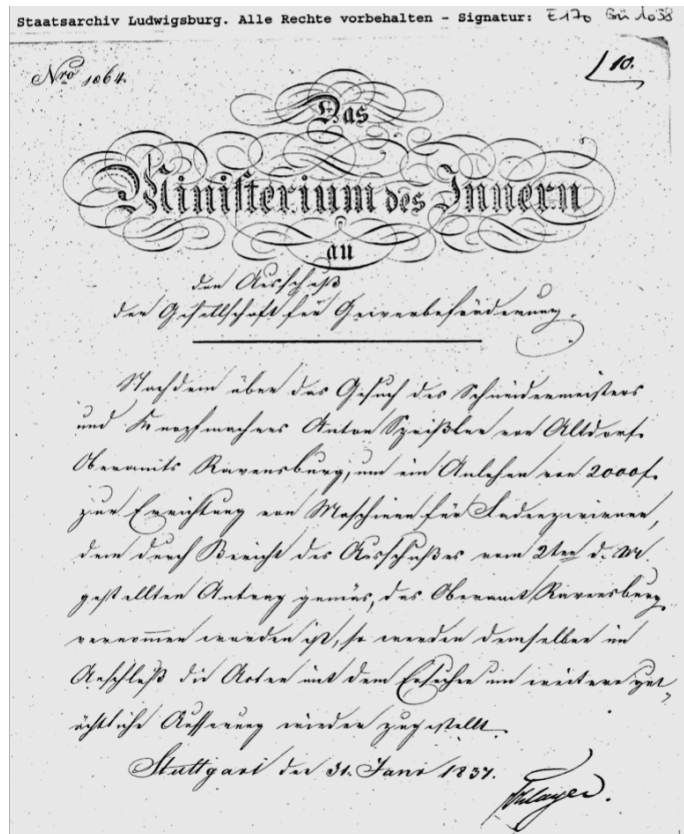 Staatsarchiv Ludwigsburg. Alle Rechte vorbehalten - Signatur: E 170 Bü 1038
Nro 1064.
10.
Das
Ministerium des Innern
an
den Ausschuß
der Gesellschaft für Gewerbeförderung.
Nachdem über das Gesuch des Schneidermeisters
und Knopfmachers Anton Speißler von Altdorf
Oberamts Ravensburg, um ein Anlehen von 2000 f.
zur Errichtung von Maschinen für Fadenzwirnen,
dem durch Bericht des Ausschußes vom 2ten d. M.
gestellten Antrag gemäs, das Oberamt Ravensburg
vernommen worden ist, so werden demselben im
Anschluß die Akten mit dem Ersuchen um weitere gut-
ächtliche Äusserung wieder zugestellt.
Stuttgart den 31. Jan. 1837.
Schlayer.